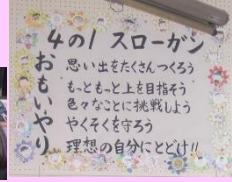 4の1 スローガン
おもいやり
思い出をたくさんつくろう
もっともっと上を目指そう
色々なことに挑戦しよう
やくそくを守ろう
理想の自分にとどけ!!